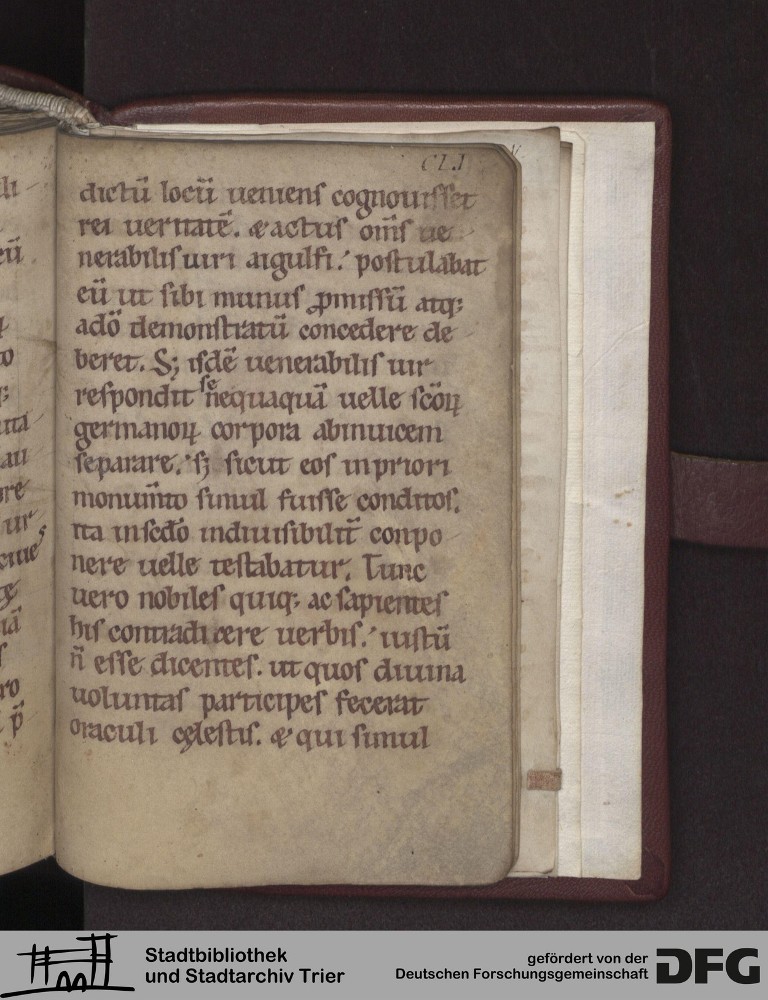 CLI
dictū locū ueniens cognouisset
rei ueritatē. & actus om̄s ue
nerabilis uiri aigulfi. postulabat
eū ut sibi munus ꝓmissū atq;
a dō demonstratū concedere de
beret. S; isdē uenerabilis uir
respondit se nequaquā uelle scōꝝ
germanoꝝ corpora abinuicem
separare. s; sicut eos in priori
monum̄to simul fuisse conditos.
ita in scdō indiuisibilit̄ conpo
nere uelle testabatur. Tunc
uero nobiles quiq; ac sapientes
his contradicere uerbis. iustū
n̄ esse dicentes. ut quos diuina
uoluntas participes fecerat
oraculi cęlestis. & qui simul
Stadtbibliothek
und Stadtarchiv Trier
gefördert von der
Deutschen Forschungsgemeinschaft
DFG